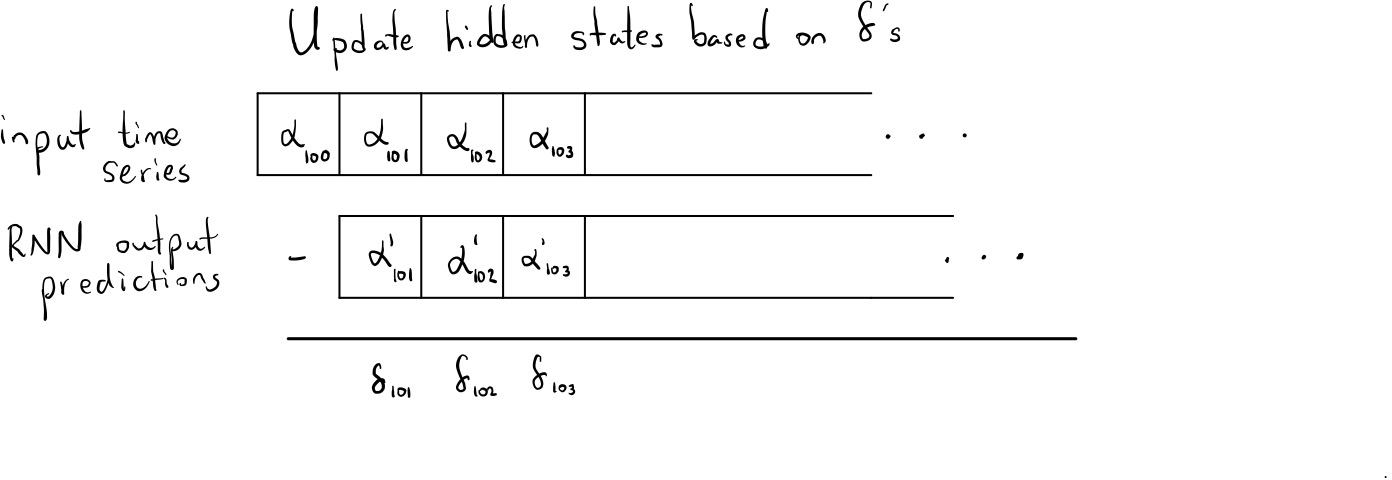 Update hidden states based on δ's
input time
series
α₁₀₀ α₁₀₁ α₁₀₂ α₁₀₃ ...
RNN output
predictions
- α'₁₀₁ α'₁₀₂ α'₁₀₃ ...
δ₁₀₁ δ₁₀₂ δ₁₀₃